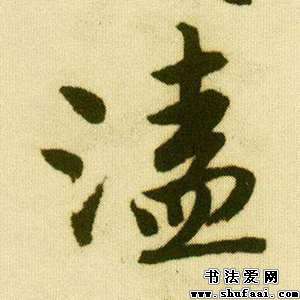 溘
书法爱网
www.shufaai.com